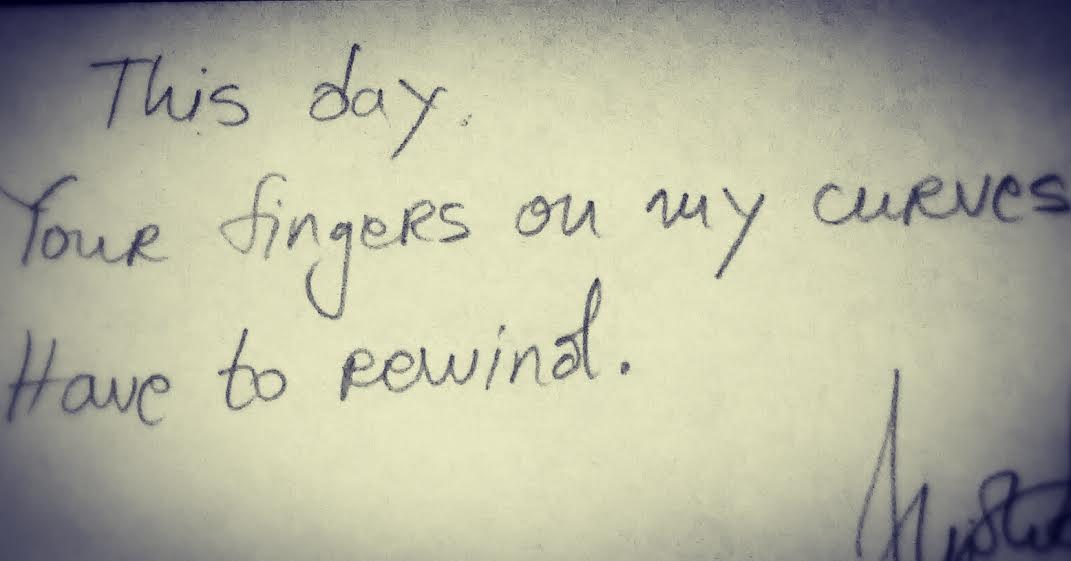 This day.
Your fingers on my curves
Have to rewind.